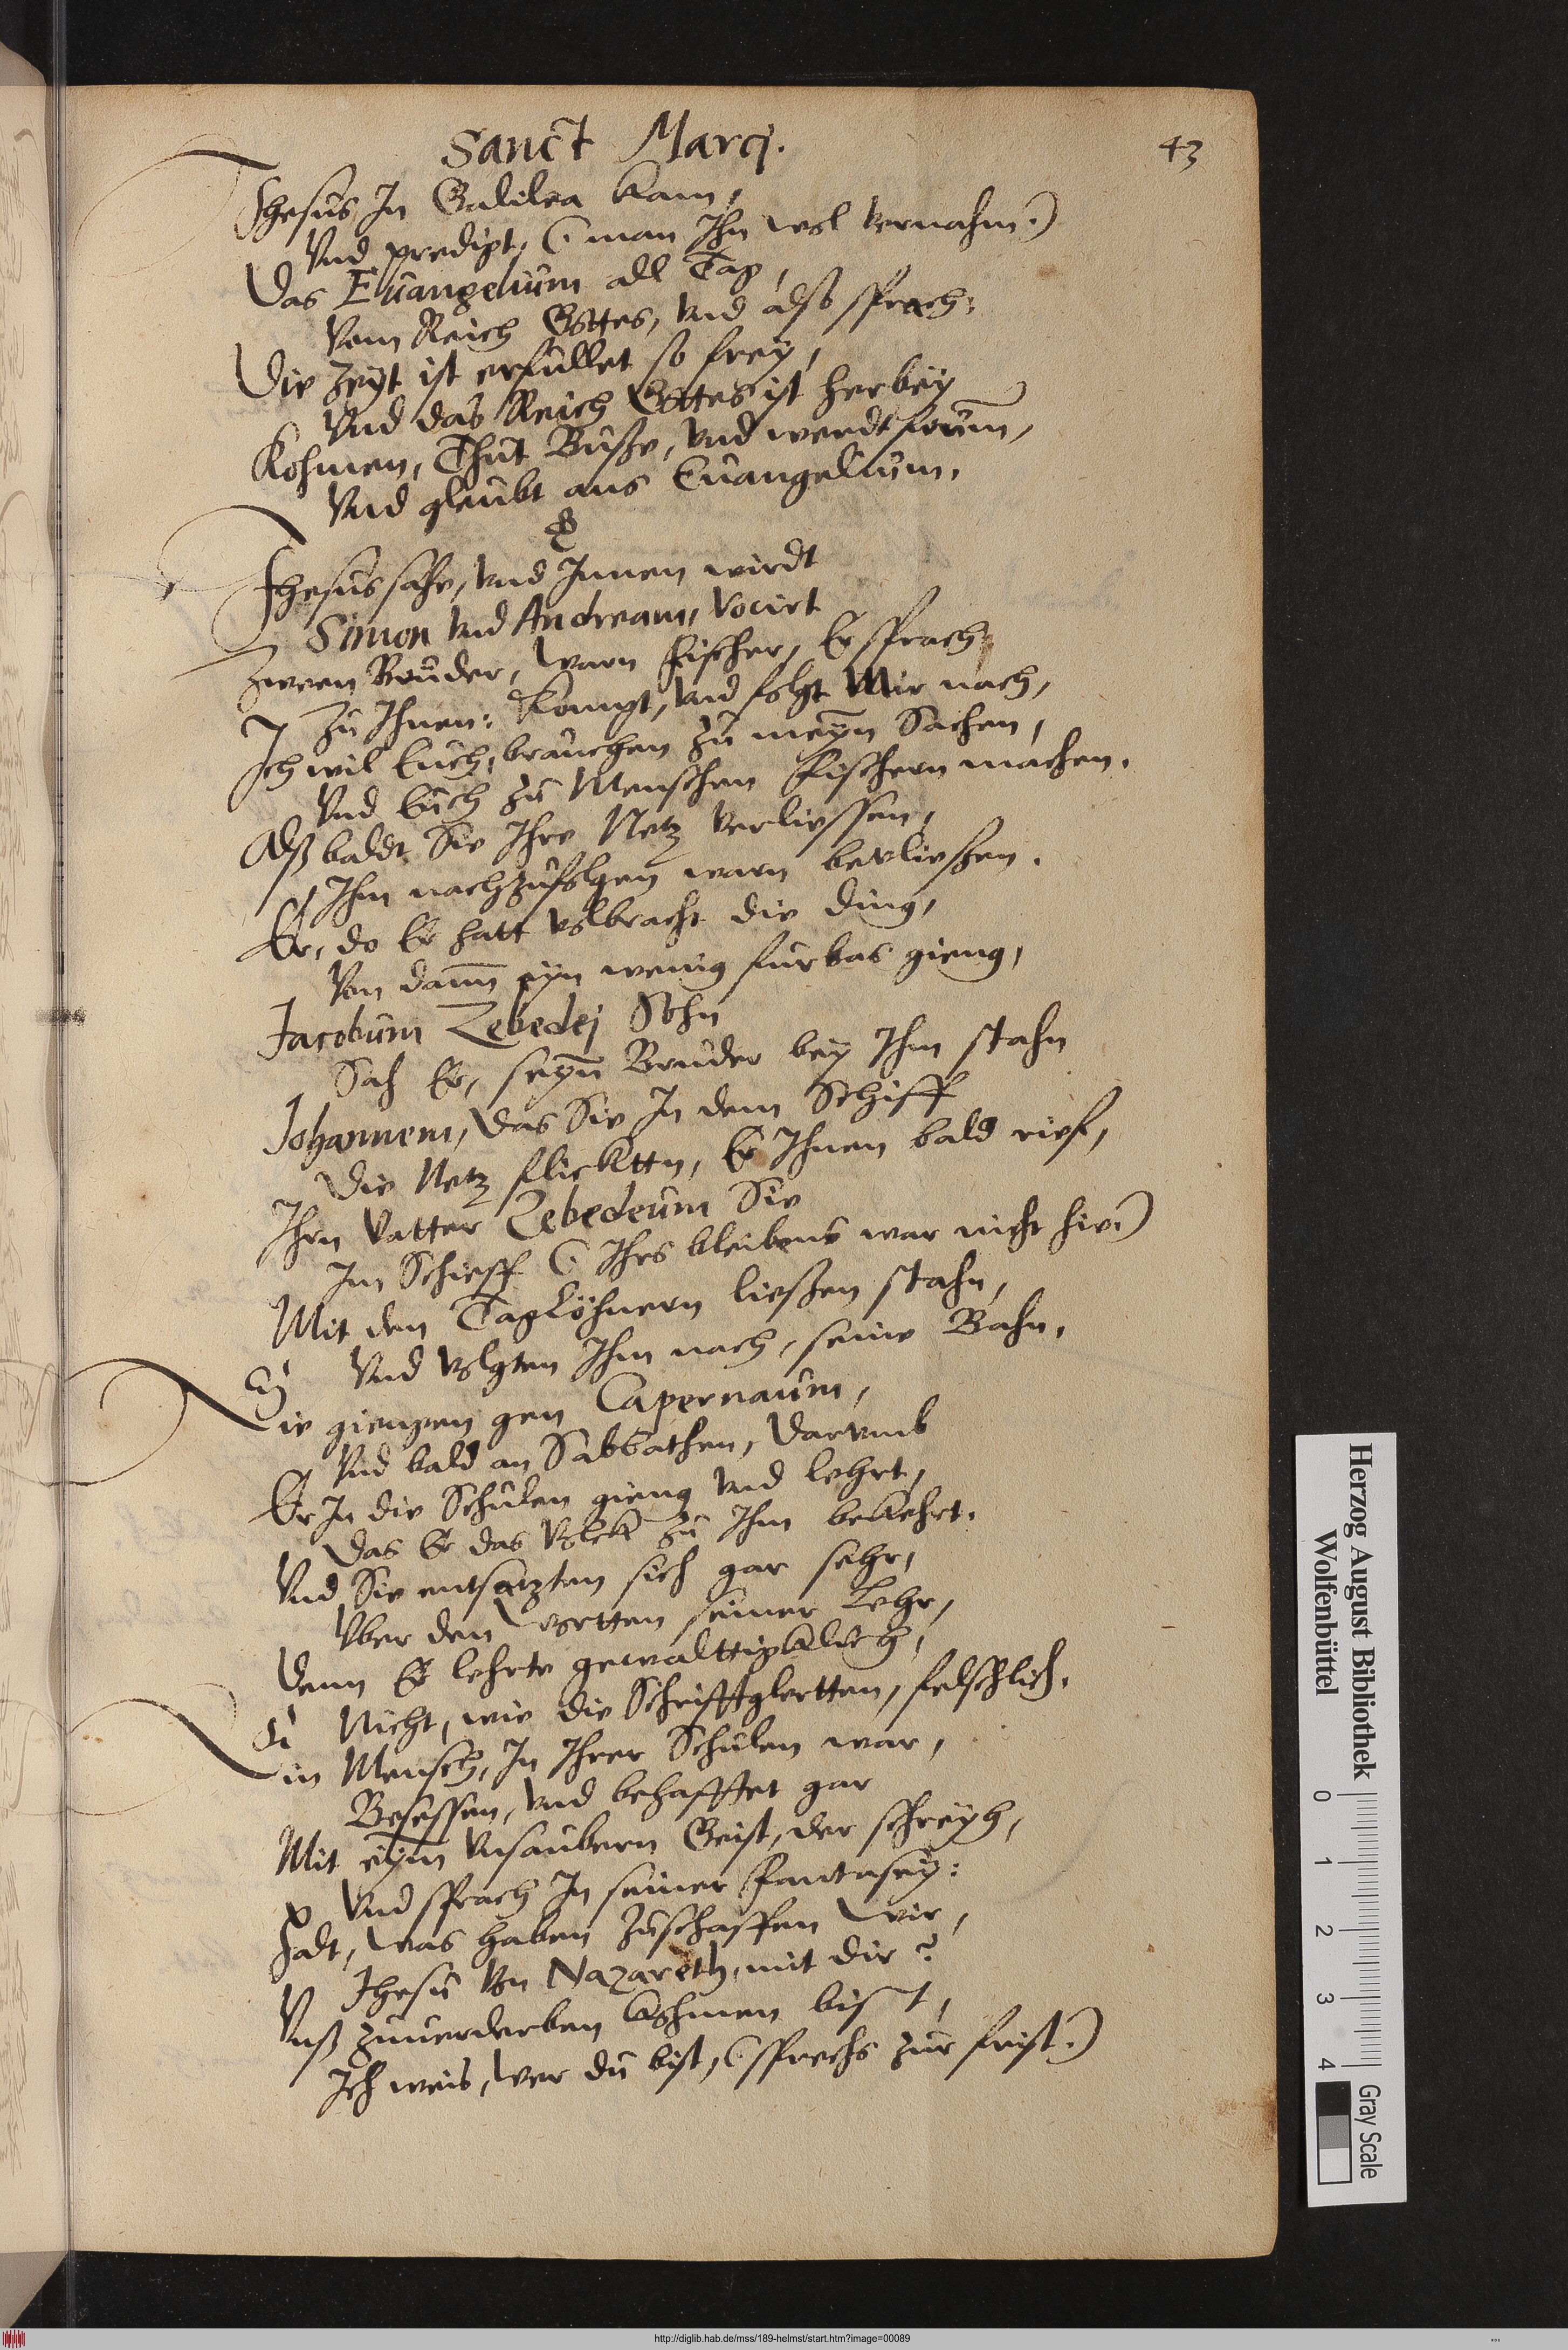 Sanct Marcj.
43
Jhesus Jn Galilea kam,
Vnd predigt, (: man Jhn wol vernahm :)
Das Euangelium all Tag,
Vom Reich Gottes, vnd also sprach:
Die Zeyt ist erfullet so frey,
Vnd das Reich Gottes ist herbey
Kohmen, Thut Busse, vnd werdt frum̄,
Vnd gleubt ans Euangelium.
Jhesus sahe, vnd Jnnen wirdt
Simon vnd Andream, Vocirt
Zween Bruder, warn Fischer, Er sprach
Zu Jhnen: Kompt, vnd folgt Mir nach,
Jch wil Euch, brauchen zu meyn̄ Sachen,
Vnd Euch zu Menschen Fischern machen.
Alß baldt Sie Jhre Netz verliessen,
Jhm nachzufolgen warn beuließen.
Er, do Er hatt volbracht die ding,
Von dann̄ eyn wenig furbas gieng,
Jacobum Zebedej Sohn
Sah Er, seyn̄ Bruder bey Jhm stahn
Johannem, Das Sie Jn dem Schiff
Die Netz flicktten, Er Jhnen bald rieff,
Jhrn Vatter Zebedeum Sie
Jm Schieff (: Jhrs bleibens war nicht hie :)
Mit den Taglöhnern ließen stahn,
Vnd volgten Jhm nach, seine Bahn.
Sie giengen gen Capernaum,
Vnd bald an Sabbathen, darumb
Er Jn die Schulen gieng vnd lehrt,
Das Er das Volck zu Jhm bekehrt.
Vnd Sie entsatzten sich gar sehr,
Vber den wortten seiner Lehr,
Denn Er lehrte gewalttigklich,
Nicht, wie die Schrifftglertten, felschlich.
Ein Mensch, Jn Jhrer Schulen war,
Besessen, vnd behafftet gar
Mit eym̄ vnsaubern Geist, der schreyh,
Vnd sprach Jn seiner Fantasey:
Halt, was haben zuschaffen wir,
Jhesu von Nazareth, mit dir?
Vnß zuuerderben kohmen bist,
Jch weis, wer du bist, (: sprechs zur frist :)
Herzog August Bibliothek
Wolfenbüttel
0 1 2 3 4
Gray Scale
http://diglib.hab.de/mss/189-helmst/start.htm?image=00089